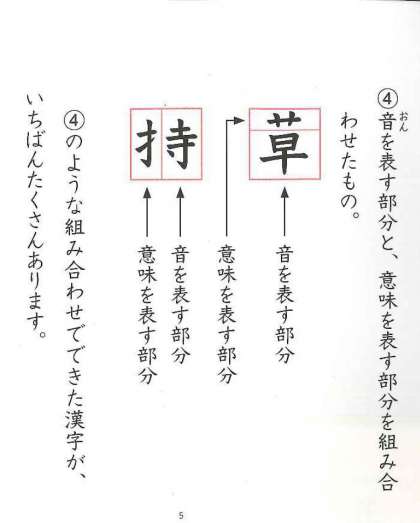 ④音を表す部分と、意味を表す部分を組み合
おん
わせたもの。
草
音を表す部分
意味を表す部分
持
音を表す部分
意味を表す部分
④のような組み合わせでできた漢字が、
いちばんたくさんあります。
5